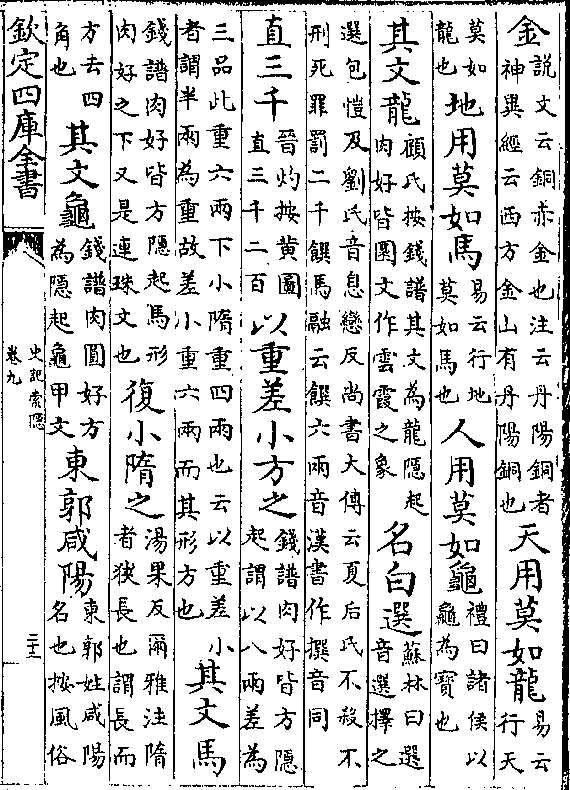 金說文云銅赤金也注云丹陽銅者神異經云西方金山有丹陽銅也天用莫如龍易云行天
莫如龍也地用莫如馬易云行地莫如馬也人用莫如龜禮曰諸侯以龜為寶也
其文龍顧氏按錢譜其文為龍隱起肉好皆圜文作雲霞之象名白選蘇林曰選音選擇之
選包愷及劉氏音息戀反尚書大傳云夏后氏不殺不刑死罪罰二千饌馬融云饌六兩音漢書作撰音同
直三千晉灼按黄圖直三千二百以重差小方之錢譜肉好皆方隱起謂以八兩差為
三品此重六兩下小隋重四兩也云以重差小者謂半兩為重故差小重六兩而其形方也其文馬
錢譜肉好皆方隱起馬形肉好之下又是連珠文也復小隋之湯果反爾雅注隋者狹長也謂長而
方去四角也其文龜錢譜肉圓好方為隱起龜甲文東郭咸陽東郭姓咸陽名也按風俗
欽定四庫全書
史記索隱
卷九